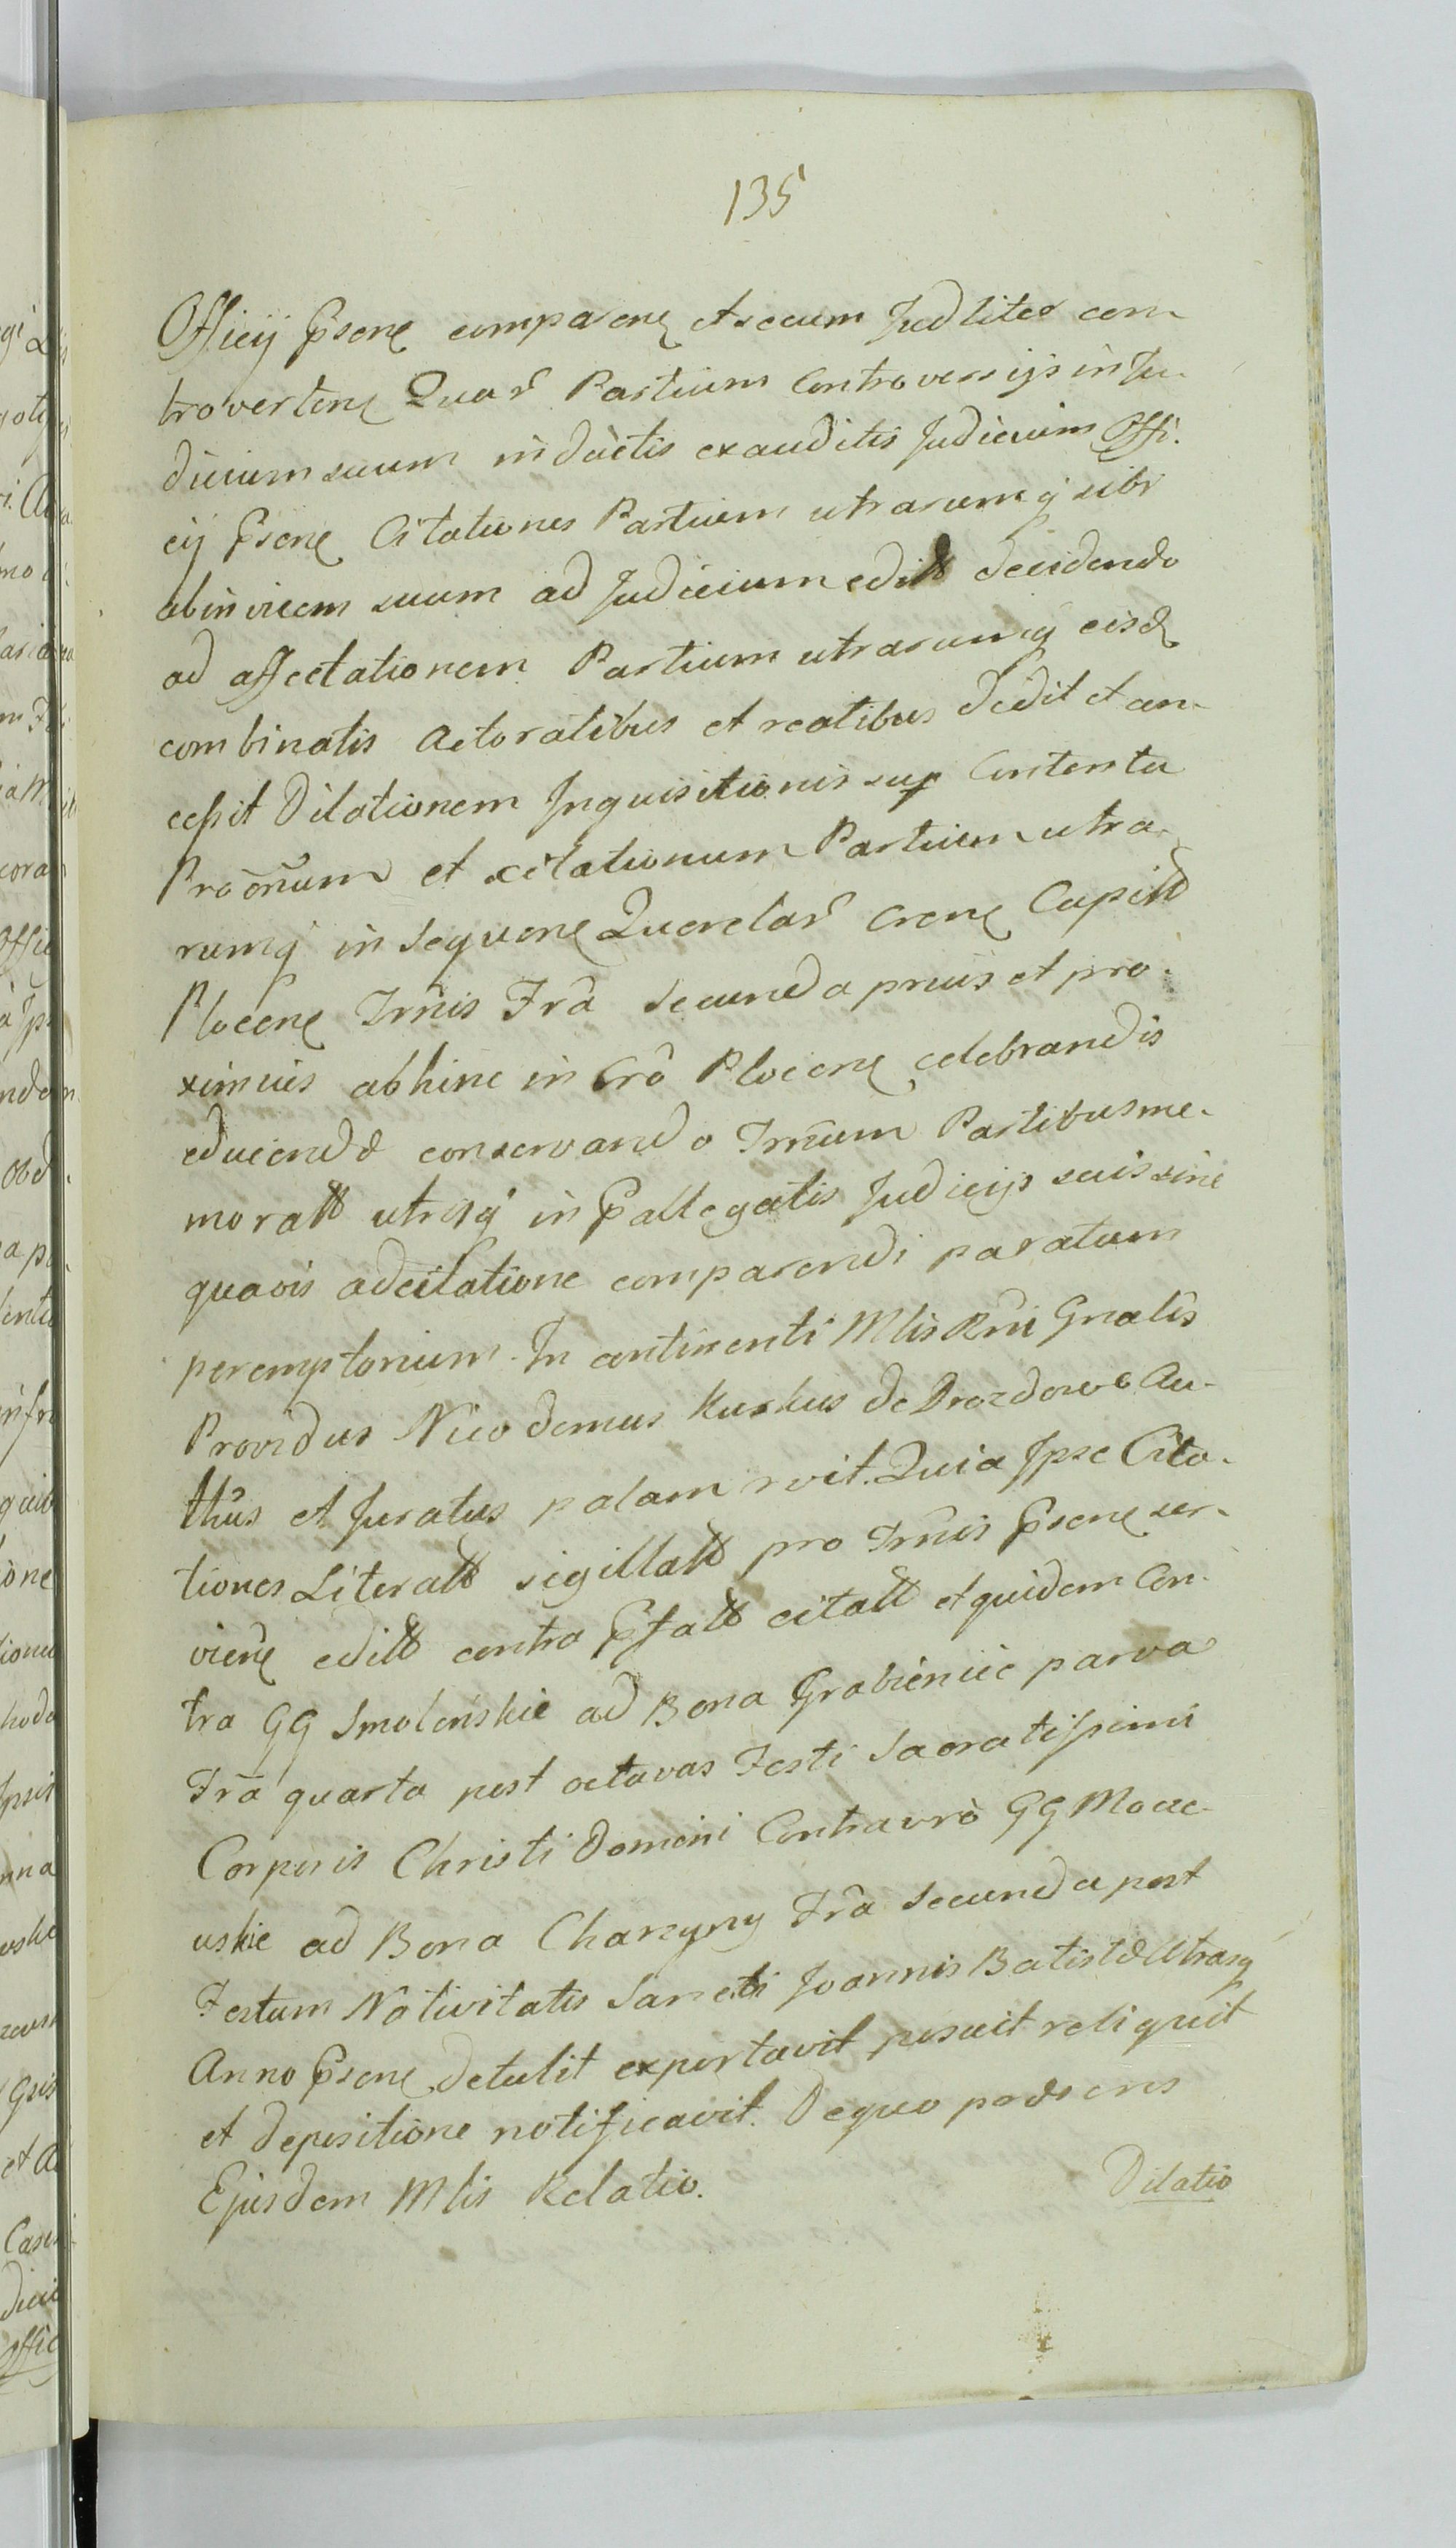 135
Officij Psenᶒ comparenᶒ et secum Judliter con-
trovertenᶒ Quar̃ Partium Controversijs in Ju-
dicium suum inductis exauditis Judicium Offi-
cij Psenᶒ Citationes Partium utrarumq̃ sibi
abinvicem suum ad Judicium editt decidendo
ad affectationem Partium utrarumq̃ eisd
combinatis Actoratibus et reatibus dedit et con-
cessit Dilationem Inquisitionis sup Contenta
Procõnum et citationum Partium utra-
rumq̃ in sequenᶒ Querelar̃ Crenᶒ Capitt
Plocenᶒ Trm̃is Frã Secunda prius et pro-
ximius abhinc in Crõ Plocenᶒ celebrandis
educend conservando Trm̃um Partibus me-
moratt utrisq̃ in Pallegatis Judicijs suis sine
quavis adcitatione comparendi paratum
peremptorium. In continenti Mlis Rni Gnalis
Providus Nicodemus Kurkus de Drozdowo Au-
thũs et Juratus palam rvit. Quia Ipse Cita-
tiones Literatt sigillatt pro Trm̃is Psenᶒ ser-
vienᶒ editt contra Pfatt citatt et quidem Con-
tra GG Smoleńskie ad Bona Grabienice parva
Frã quarta post octavas Festi Sacratissimi
Corporis Christi Domini Contra vrõ GG Mocar-
uskie ad Bona Charzyny Frã secunda post
Festum Nativitatis Sancti Joannis Batistæ Utrasq̃
Anno Psenᶒ detulit exportavit posuit reliquit
et depositione notificavit. De quo præsens
Ejusdem Mlis Relatio.
Dilatio